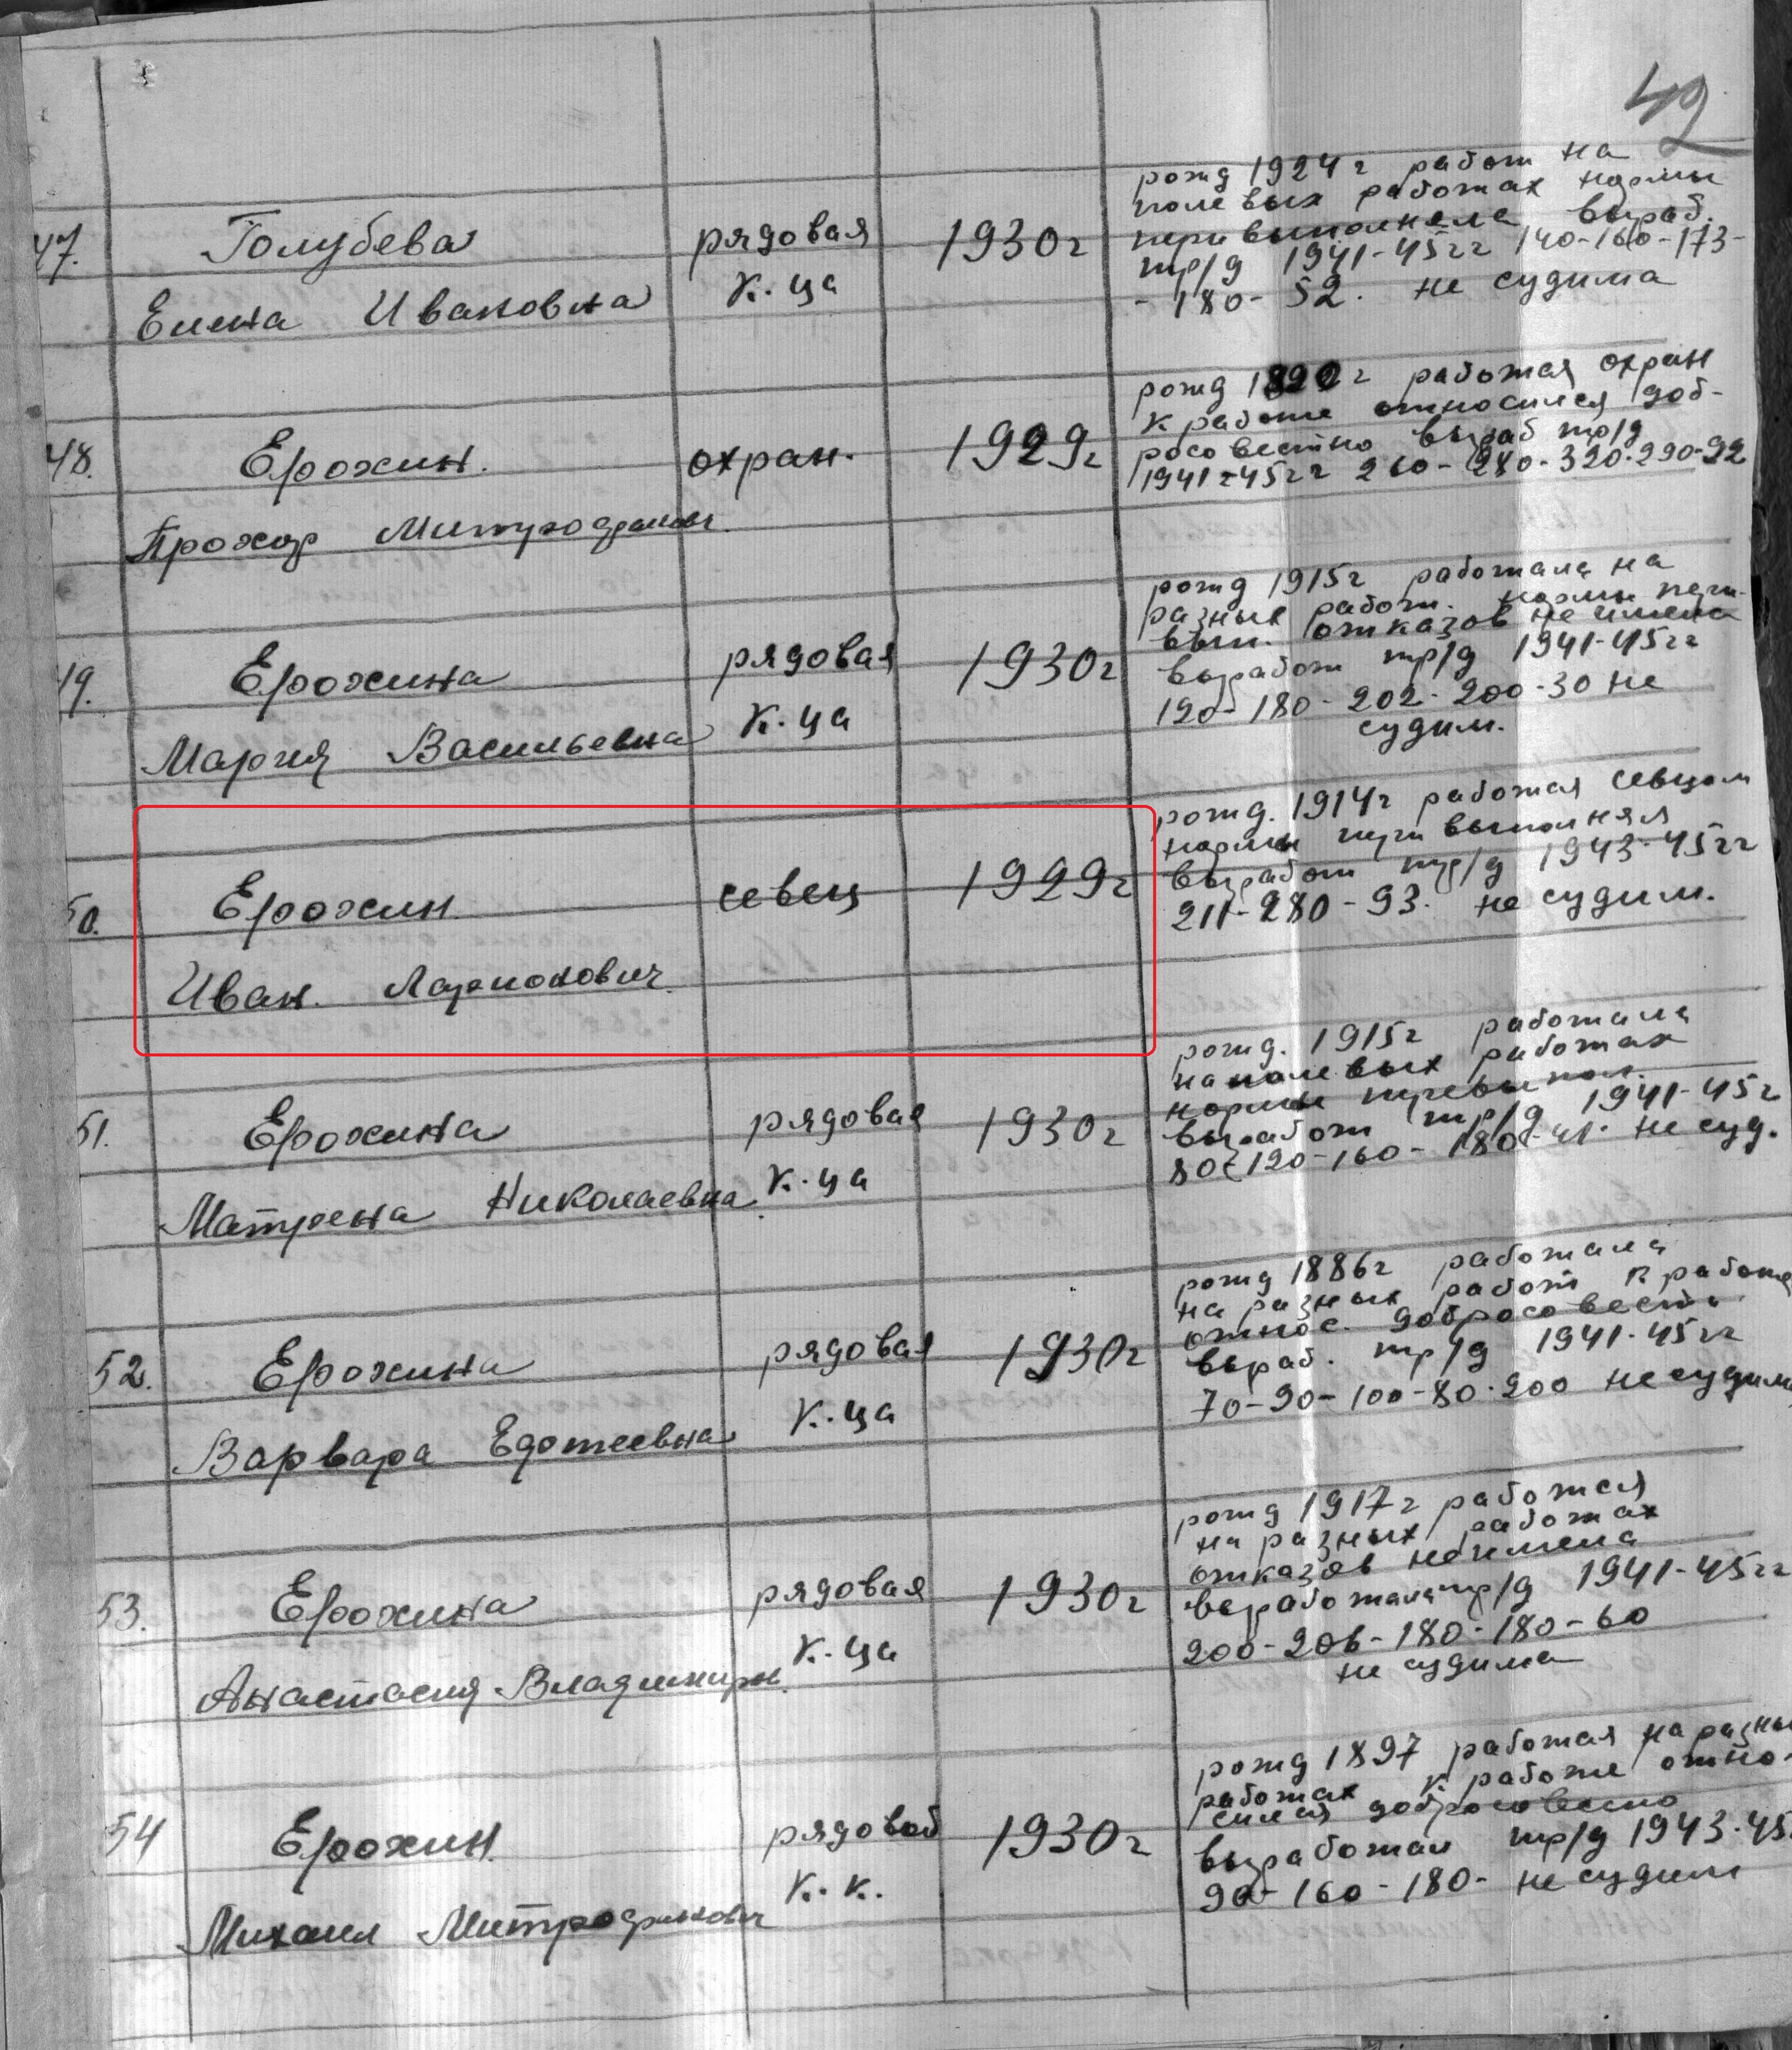 42
47. Голубева рядовая 1930г
Елена Ивановна к-ца
рожд 1924г работ на
полевых работах нормы
перевыполняла выраб.
тр/д 1941-45гг 140-160-173-
-180-52. не судима
48. Ерохин. охран. 1929г
Прохор Митрофанов.
рожд работал охран
к работе относился доб-
росовестно выраб тр/д
1941-45гг 260-280-320-290-92
49. Ерохина рядовая 1930г
Мария Васильевна к-ца
рожд 1915г работала на
разных работ. нормы пери-
вып. отказов не имела
выработ тр/д 1941-45гг
120-180-202-200-30 не
судим.
50. Ерохин севец 1929г
Иван. Ларионович.
рожд. 1914г работал севцом
нормы перивыполнял
выработ тр/д 1943-45гг
211-280-93. не судим.
51. Ерохина рядовая 1930г
Матрена Николаевна к-ца
рожд. 1915г работала
на полевых работах
нормы перевыпол.
выработ тр/д 1941-45г
80-120-160-180-41. не суд.
52. Ерохина рядовая 1930г
Варвара Едотеевна к-ца
рожд 1886г работала
на разных работ к работе
относ. добросовестно
выраб. тр/д 1941-45гг
70-90-100-80-200 не судим
53. Ерохина рядовая 1930г
Анастасия Владимирн. к-ца
рожд 1917г работая
на разных работах
отказов неимела
выработала тр/д 1941-45гг
200-206-180-180-60
не судима
54 Ерохин рядовой 1930г
Михаил Митрофанович к-к.
рожд 1897 работал на разны
работах к работе отно-
сился добросовесно
выработал тр/д 1943-45
90-160-180- не судим